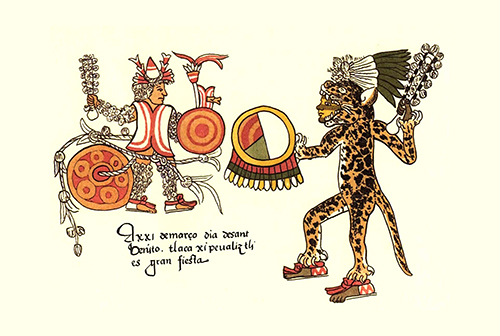 A xxi demarço dia desant
Benito. tlaca xipeualiztli
es gran fiesta